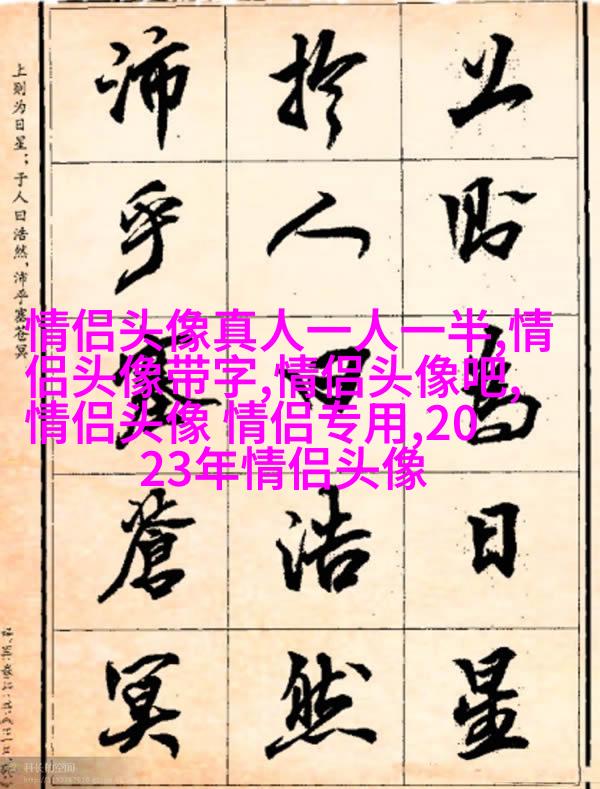 上则为日星
於人曰浩然
沛乎塞蒼冥
上则为日星；于人曰浩然，沛乎塞苍冥
情侣头像真人一人一半,情
侣头像带字,情侣头像吧,
情侣头像 情侣专用,20
23年情侣头像
科长的空间